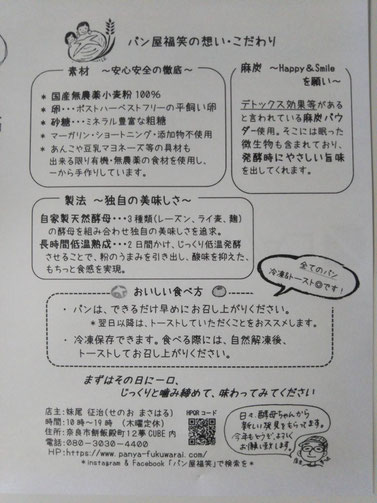 パン屋福笑の想い・こだわり
素材 ～安心安全の徹底～
* 国産無農薬小麦粉100％
* 卵・・・ポストハーベストフリーの平飼い卵
* 砂糖・・・ミネラル豊富な粗糖
* マーガリン・ショートニング・添加物不使用
* あんこや豆乳マヨネーズ等の具材も
出来る限り有機・無農薬の食材を使用し、
一から手作りしています。
麻炭 ～Happy＆Smile
を願い～
デトックス効果等がある
と言われている麻炭パウ
ダー使用。そこには眠った
微生物も含まれており、
発酵時にやさしい旨味
を出してくれます。
製法 ～独自の美味しさ～
自家製天然酵母・・・3種類（レーズン、ライ麦、麹）
の酵母を組み合わせ独自の美味しさを追求。
長時間低温熟成・・・2日間かけ、じっくり低温発酵
させることで、粉のうまみを引き出し、酸味を抑えた、
もちっと食感を実現。
全てのパン
冷凍&トースト◎です！
おいしい食べ方
・パンは、できるだけ早めにお召し上がりください。
*翌日以降は、トーストしていただくことをおススメします。
・冷凍保存できます。食べる際には、自然解凍後、
トーストしてお召し上がりください。
まずはその日に一口、
じっくりと噛み締めて、味わってみてください
店主：妹尾 征治（せのお まさはる）
時間：10時～19時 （木曜定休）
住所：奈良市餅飯殿町12夢CUBE内
電話：080－3030－4400
HP：https://www.panya-fukuwarai.com/
*instagram & Facebook「パン屋福笑」で検索を*
HPQRコード
日々、酵母ちゃんから
新しい発見をもらってます。
今年もどうぞ、よろしく
お願い致します。